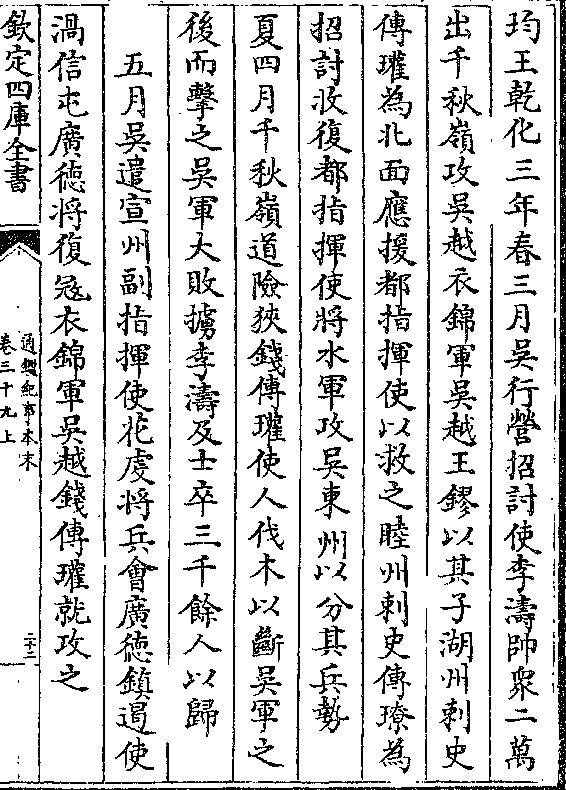 均王乾化三年春三月吳行營招討使李濤帥衆二萬
出千秋嶺攻吳越衣錦軍吳越王鏐以其子湖州刺史
傳瓘為北面應援都指揮使以救之睦州刺史傳璙為
招討收復都指揮使將水軍攻吳東州以分其兵勢
夏四月千秋嶺道險狹錢傳瓘使人伐木以斷吳軍之
後而擊之吳軍大敗擄李濤及士卒三千餘人以歸
五月吳遣宣州副指揮使花虔將兵會廣徳鎮遏使
渦信屯廣徳將復寇衣錦軍吳越錢傳瓘就攻之
欽定四庫全書
通鑑紀事本末
卷三十九上
二十二